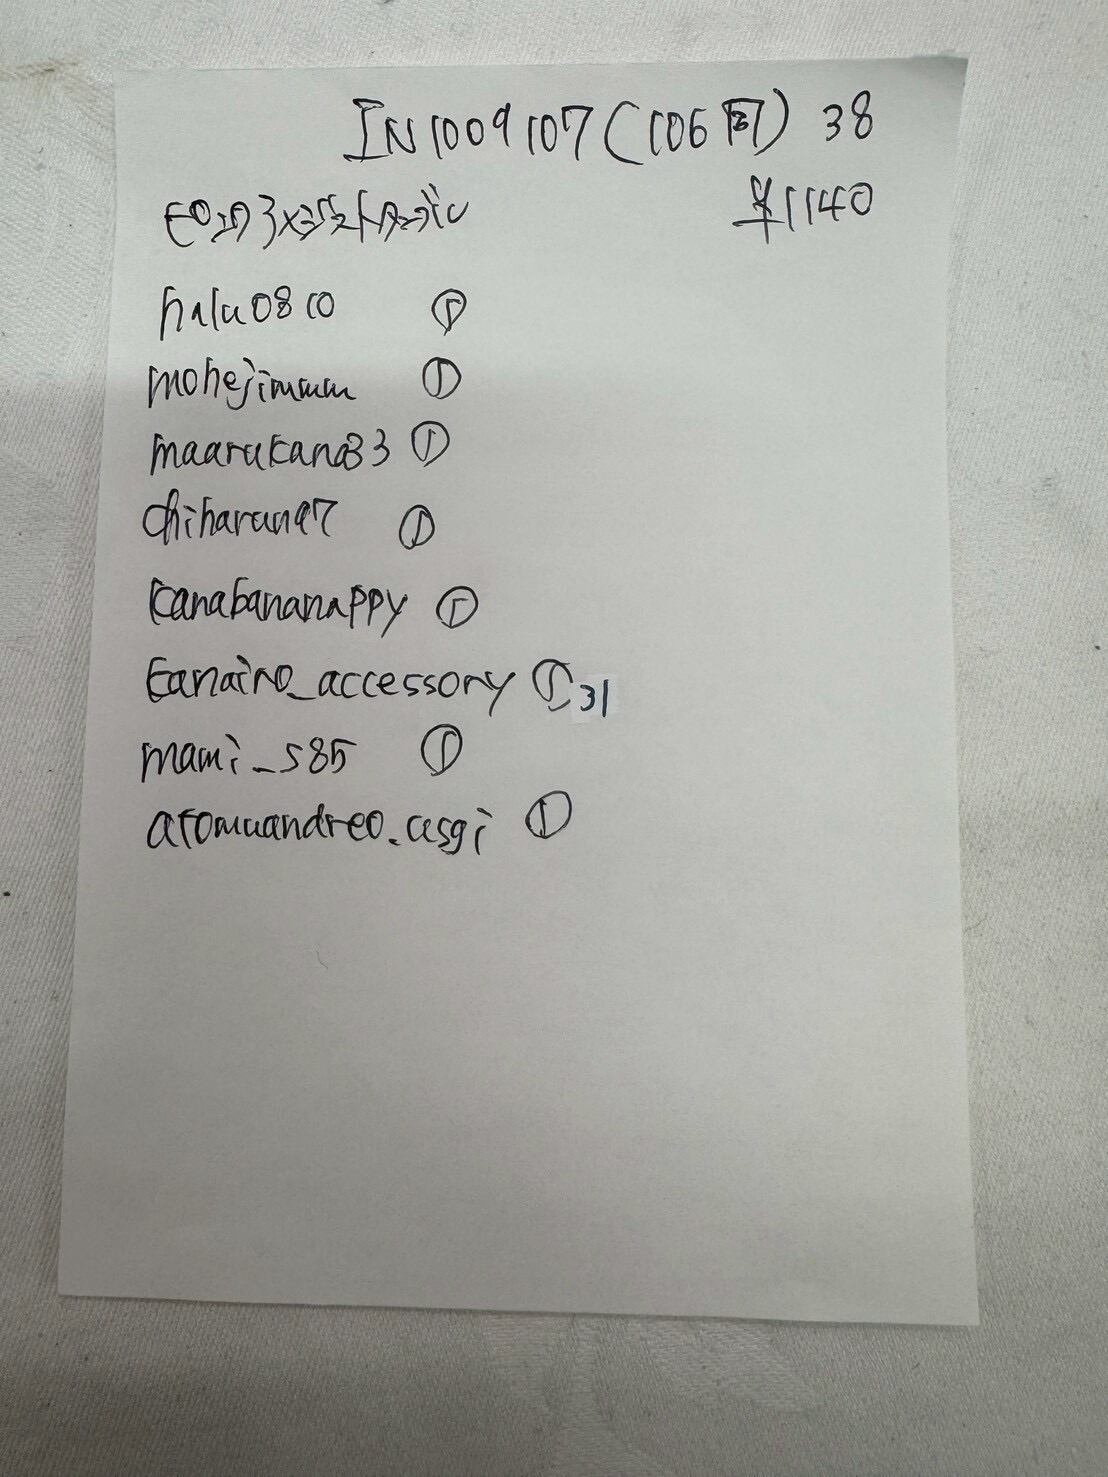 IN1009107(106回) 38
¥1140
halu0810 ①
mohejimmm ①
maarukana33 ①
chiharun97 ①
kanabananappy ①
kanairo_accessory ① 31
mami_s85 ①
atomuandreo.usgi ①